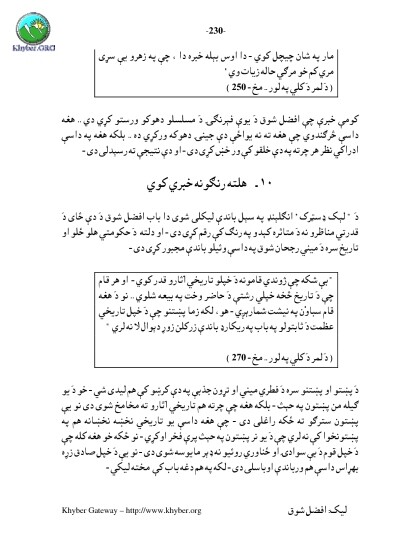 -230-
Khyber.ORG
مار په شان چيچل کوي - دا اوس بېله خبره دا ، چې په زهرو يې سړی
مري کم خو مرګي حاله زيات وي "
( د لمر د کلي په لور .. مخ - 250 )
کومې خبرې چې افضل شوق د يوې فېرنګۍ د مسلسلو دهوکو ورستو کړي دي .. هغه
داسې څرګندوي چې هغه ته نه يواځې دې جينۍ دهوکه ورکړې ده .. بلکه هغه په داسې
ادراکي نظر هر چرته په دې خلقو کې ور خښ کړی دی - او دې نتيجې ته رسېدلی دی -
۱۰ - هلته رنګونه خبرې کوي
د " لېک ډسټرک " انګلېنډ په سېل باندې ليکلی شوی دا باب افضل شوق د دې ځای د
قدرتي مناظرو نه د متاثره کېدو په رنګ کې رقم کړی دی - او دلته د حکومتي هلو ځلو او
تاريخ سره د مينې رجحان شوق په داسې وئيلو باندې مجبور کړی دی -
" بې شکه چې ژوندي قامونه د خپلو تاريخي آثارو قدر کوي - او هر قام
چې د تاريخ څخه خپلې رشتې د حاضر وخت په بيعه شلوي .. نو د هغه
قام سباوُن په نيشت شمارېږي - هو ، لکه زما پښتنو چې د خپل تاريخي
عظمت د ثابتولو په باب په ريکارډ باندې زرکلن زوړ دېوال لا نه لري "
( د لمر د کلي په لور .. مخ - 270 )
د پښتو او پښتنو سره د فطري مينې او تړون جذبې په دې کرښو کې هم ليدی شي - خو د يو
ګيله من پښتون په حېث - بلکه هغه چې چرته هم تاريخي آثارو ته مخامخ شوی دی نو بې
پښتون سترګو ته ځکه راغلی دی - چې هغه داسې يو تاريخي نخښه نخښانه هم په
پښتونخوا کې نه لري چې د يو تر پښتون په حېث پرې فخر اوکړي - نو ځکه خو هغه کله چې
د خپل قوم د بې سوادۍ او ځناورې روئيو نه ډېر مايوسه شوی دی - نو بې د خپل صادق زړه
بهړاس داسې هم ورباندې اوباسلی دی - لکه په هم دغه باب کې مخته ليکي -
Khyber Gateway – http://www.khyber.org
ليک: افضل شوق